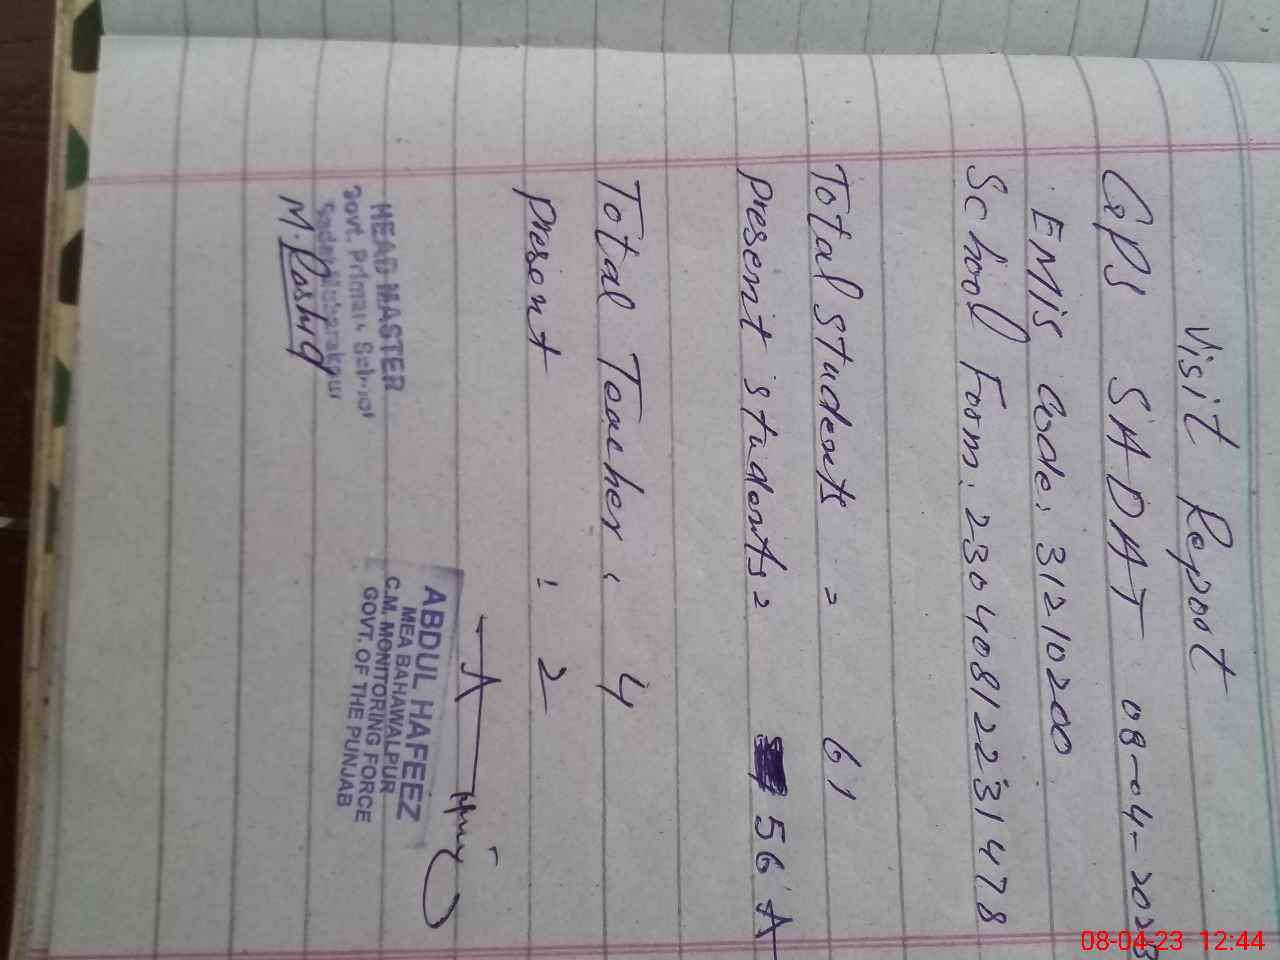 Visit Report
GPS SADAT 08-04-2023
EMIS Code: 31210200
School Form: 23040812231478
Total Students = 61
Present Students = 56 A
Total Teacher: 4
Present : 2
HEAD MASTER
Govt. Primary School
M. Rashiq
ABDUL HAFEEZ
MEA BAHAWALPUR
C.M. MONITORING FORCE
GOVT. OF THE PUNJAB
08-04-23 12:44